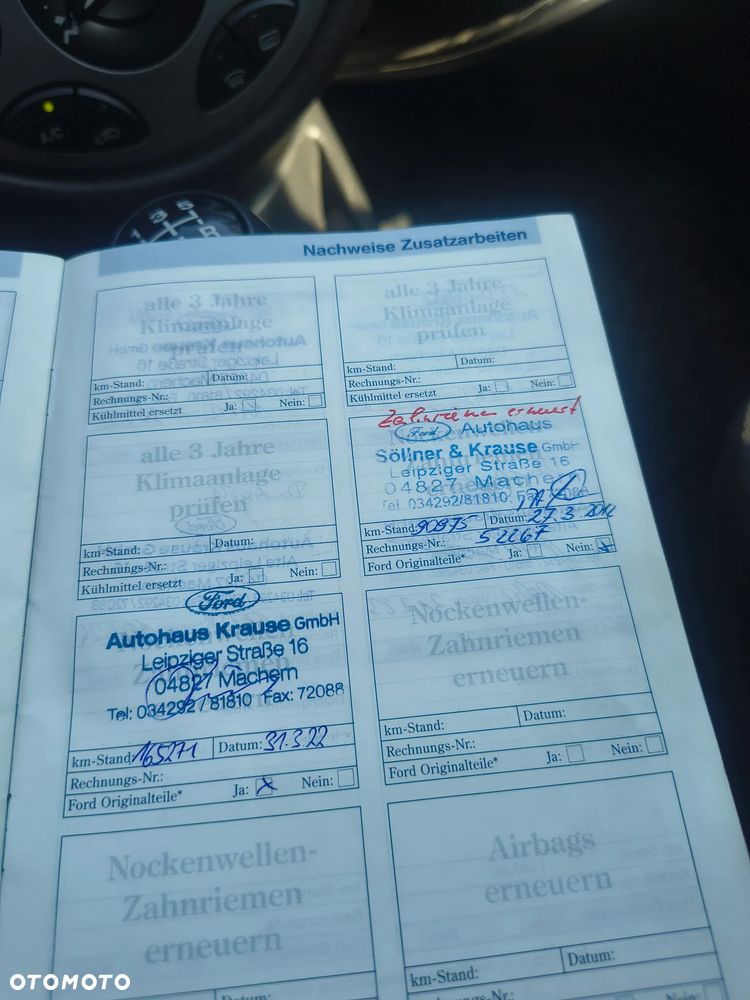 A/C
1 3 5 R
Nachweise Zusatzarbeiten
alle 3 Jahre
Klimaanlage
prüfen
km-Stand: Datum:
Rechnungs-Nr.:
Kühlmittel ersetzt Ja: Nein:
alle 3 Jahre
Klimaanlage
prüfen
km-Stand: Datum:
Rechnungs-Nr.:
Kühlmittel ersetzt Ja: Nein:
alle 3 Jahre
Klimaanlage
prüfen
km-Stand: Datum:
Rechnungs-Nr.:
Kühlmittel ersetzt Ja: Nein:
Zahnriemen erneuert
Ford Autohaus
Söllner & Krause GmbH
Leipziger Straße 16
04827 Machern
Tel. 034292/81810
km-Stand: 90975 Datum: 27.3.2012
Rechnungs-Nr.: 52267
Ford Originalteile* Ja: Nein: x
Ford
Autohaus Krause GmbH
Leipziger Straße 16
04827 Machern
Tel: 034292/81810 Fax: 72088
km-Stand: 165271 Datum: 31.3.22
Rechnungs-Nr.:
Ford Originalteile* Ja: x Nein:
Nockenwellen-
Zahnriemen
erneuern
km-Stand: Datum:
Rechnungs-Nr.:
Ford Originalteile* Ja: Nein:
Nockenwellen-
Zahnriemen
erneuern
Airbags
erneuern
km-Stand: Datum:
OTOMOTO